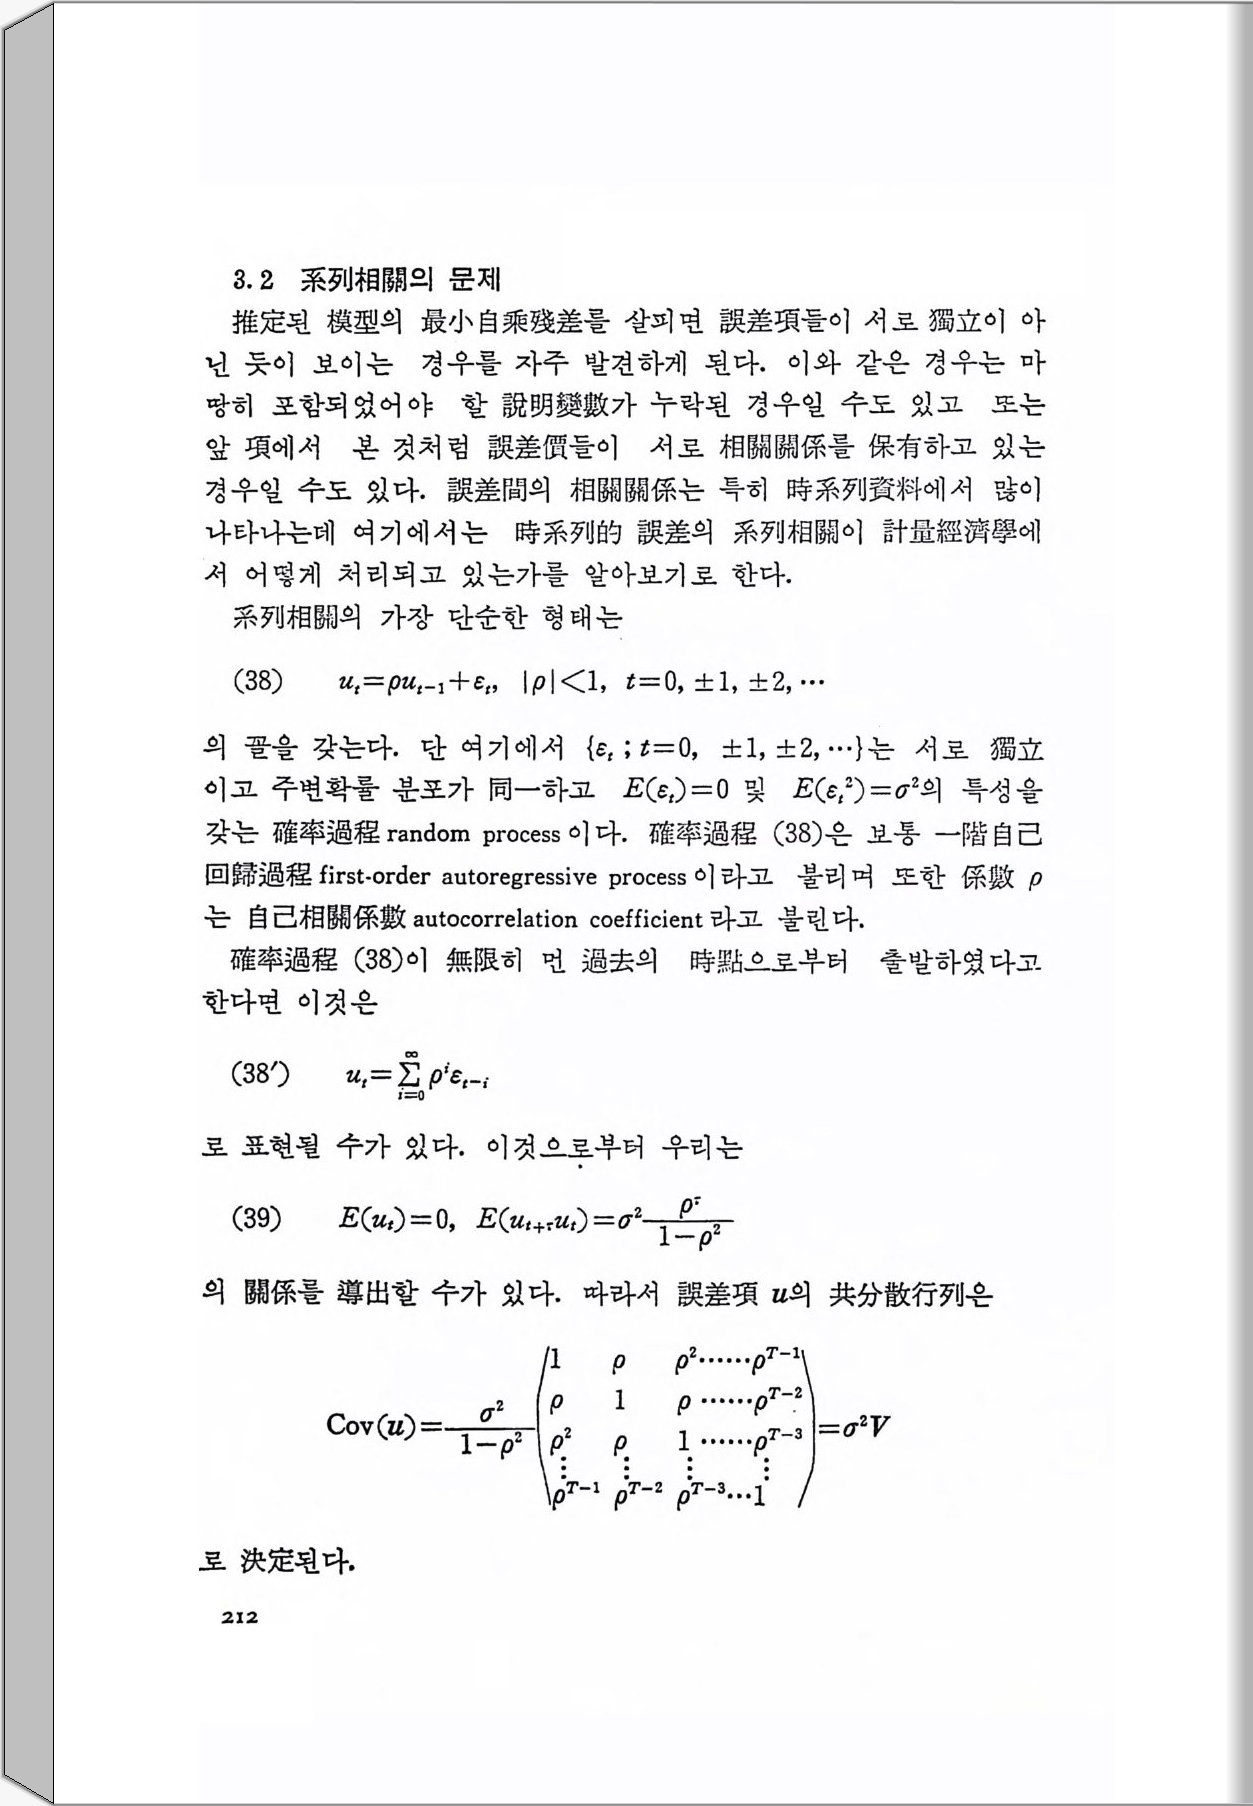 3.2 系列相關의 문제
推定된 模型의 最小自乘殘差를 살피면 誤差項들이 서로 獨立이 아
닌 듯이 보이는 경우를 자주 발견하게 된다. 이와 같은 경우는 마
땅히 포함되었어야 할 說明變數가 누락된 경우일 수도 있고 또는
앞 項에서 본 것처럼 誤差價들이 서로 相關關係를 保有하고 있는
경우일 수도 있다. 誤差間의 相關關係는 특히 時系列資料에서 많이
나타나는데 여기에서는 時系列的 誤差의 系列相關이 計量經濟學에
서 어떻게 처리되고 있는가를 알아보기로 한다.
系列相關의 가장 단순한 형태는
(38) uₜ=ρuₜ₋₁+εₜ, |ρ|<1, t=0, ±1, ±2, ⋯
의 꼴을 갖는다. 단 여기에서 {εₜ ; t=0, ±1, ±2, ⋯}는 서로 獨立
이고 주변확률 분포가 同一하고 E(εₜ)=0 및 E(εₜ²)=σ²의 특성을
갖는 確率過程 random process 이다. 確率過程 (38)은 보통 一階自己
回歸過程 first-order autoregressive process 이라고 불리며 또한 係數 ρ
는 自己相關係數 autocorrelation coefficient 라고 불린다.
確率過程 (38)이 無限히 먼 過去의 時點으로부터 출발하였다고
한다면 이것은
(38′) uₜ=∑_{i=0}^{∞} ρⁱεₜ₋ᵢ
로 표현될 수가 있다. 이것으로부터 우리는
(39) E(uₜ)=0, E(u_{t+τ}uₜ)=σ² ρ^τ/(1−ρ²)
의 關係를 導出할 수가 있다. 따라서 誤差項 u의 共分散行列은
Cov(u)= σ²/(1−ρ²)
1 ρ ρ²⋯⋯ρ^{T−1}
ρ 1 ρ ⋯⋯ρ^{T−2}
ρ² ρ 1 ⋯⋯ρ^{T−3}
⋮ ⋮ ⋮ ⋮
ρ^{T−1} ρ^{T−2} ρ^{T−3}⋯1
=σ²V
로 決定된다.
212